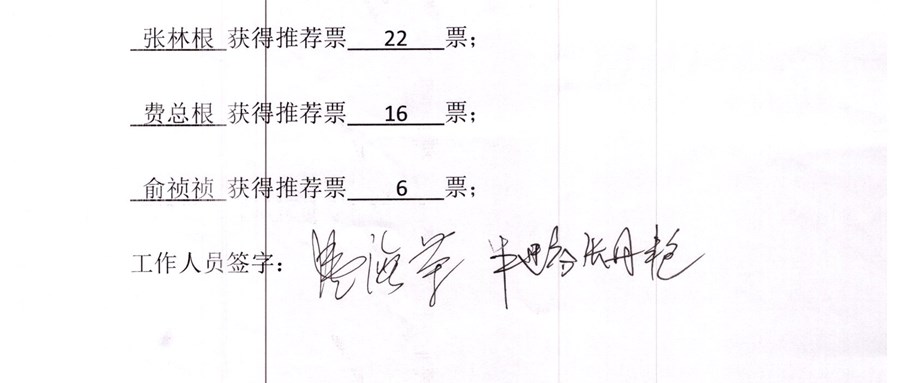 张林根 获得推荐票 22 票；
费总根 获得推荐票 16 票；
俞祯祯 获得推荐票 6 票；
工作人员签字：